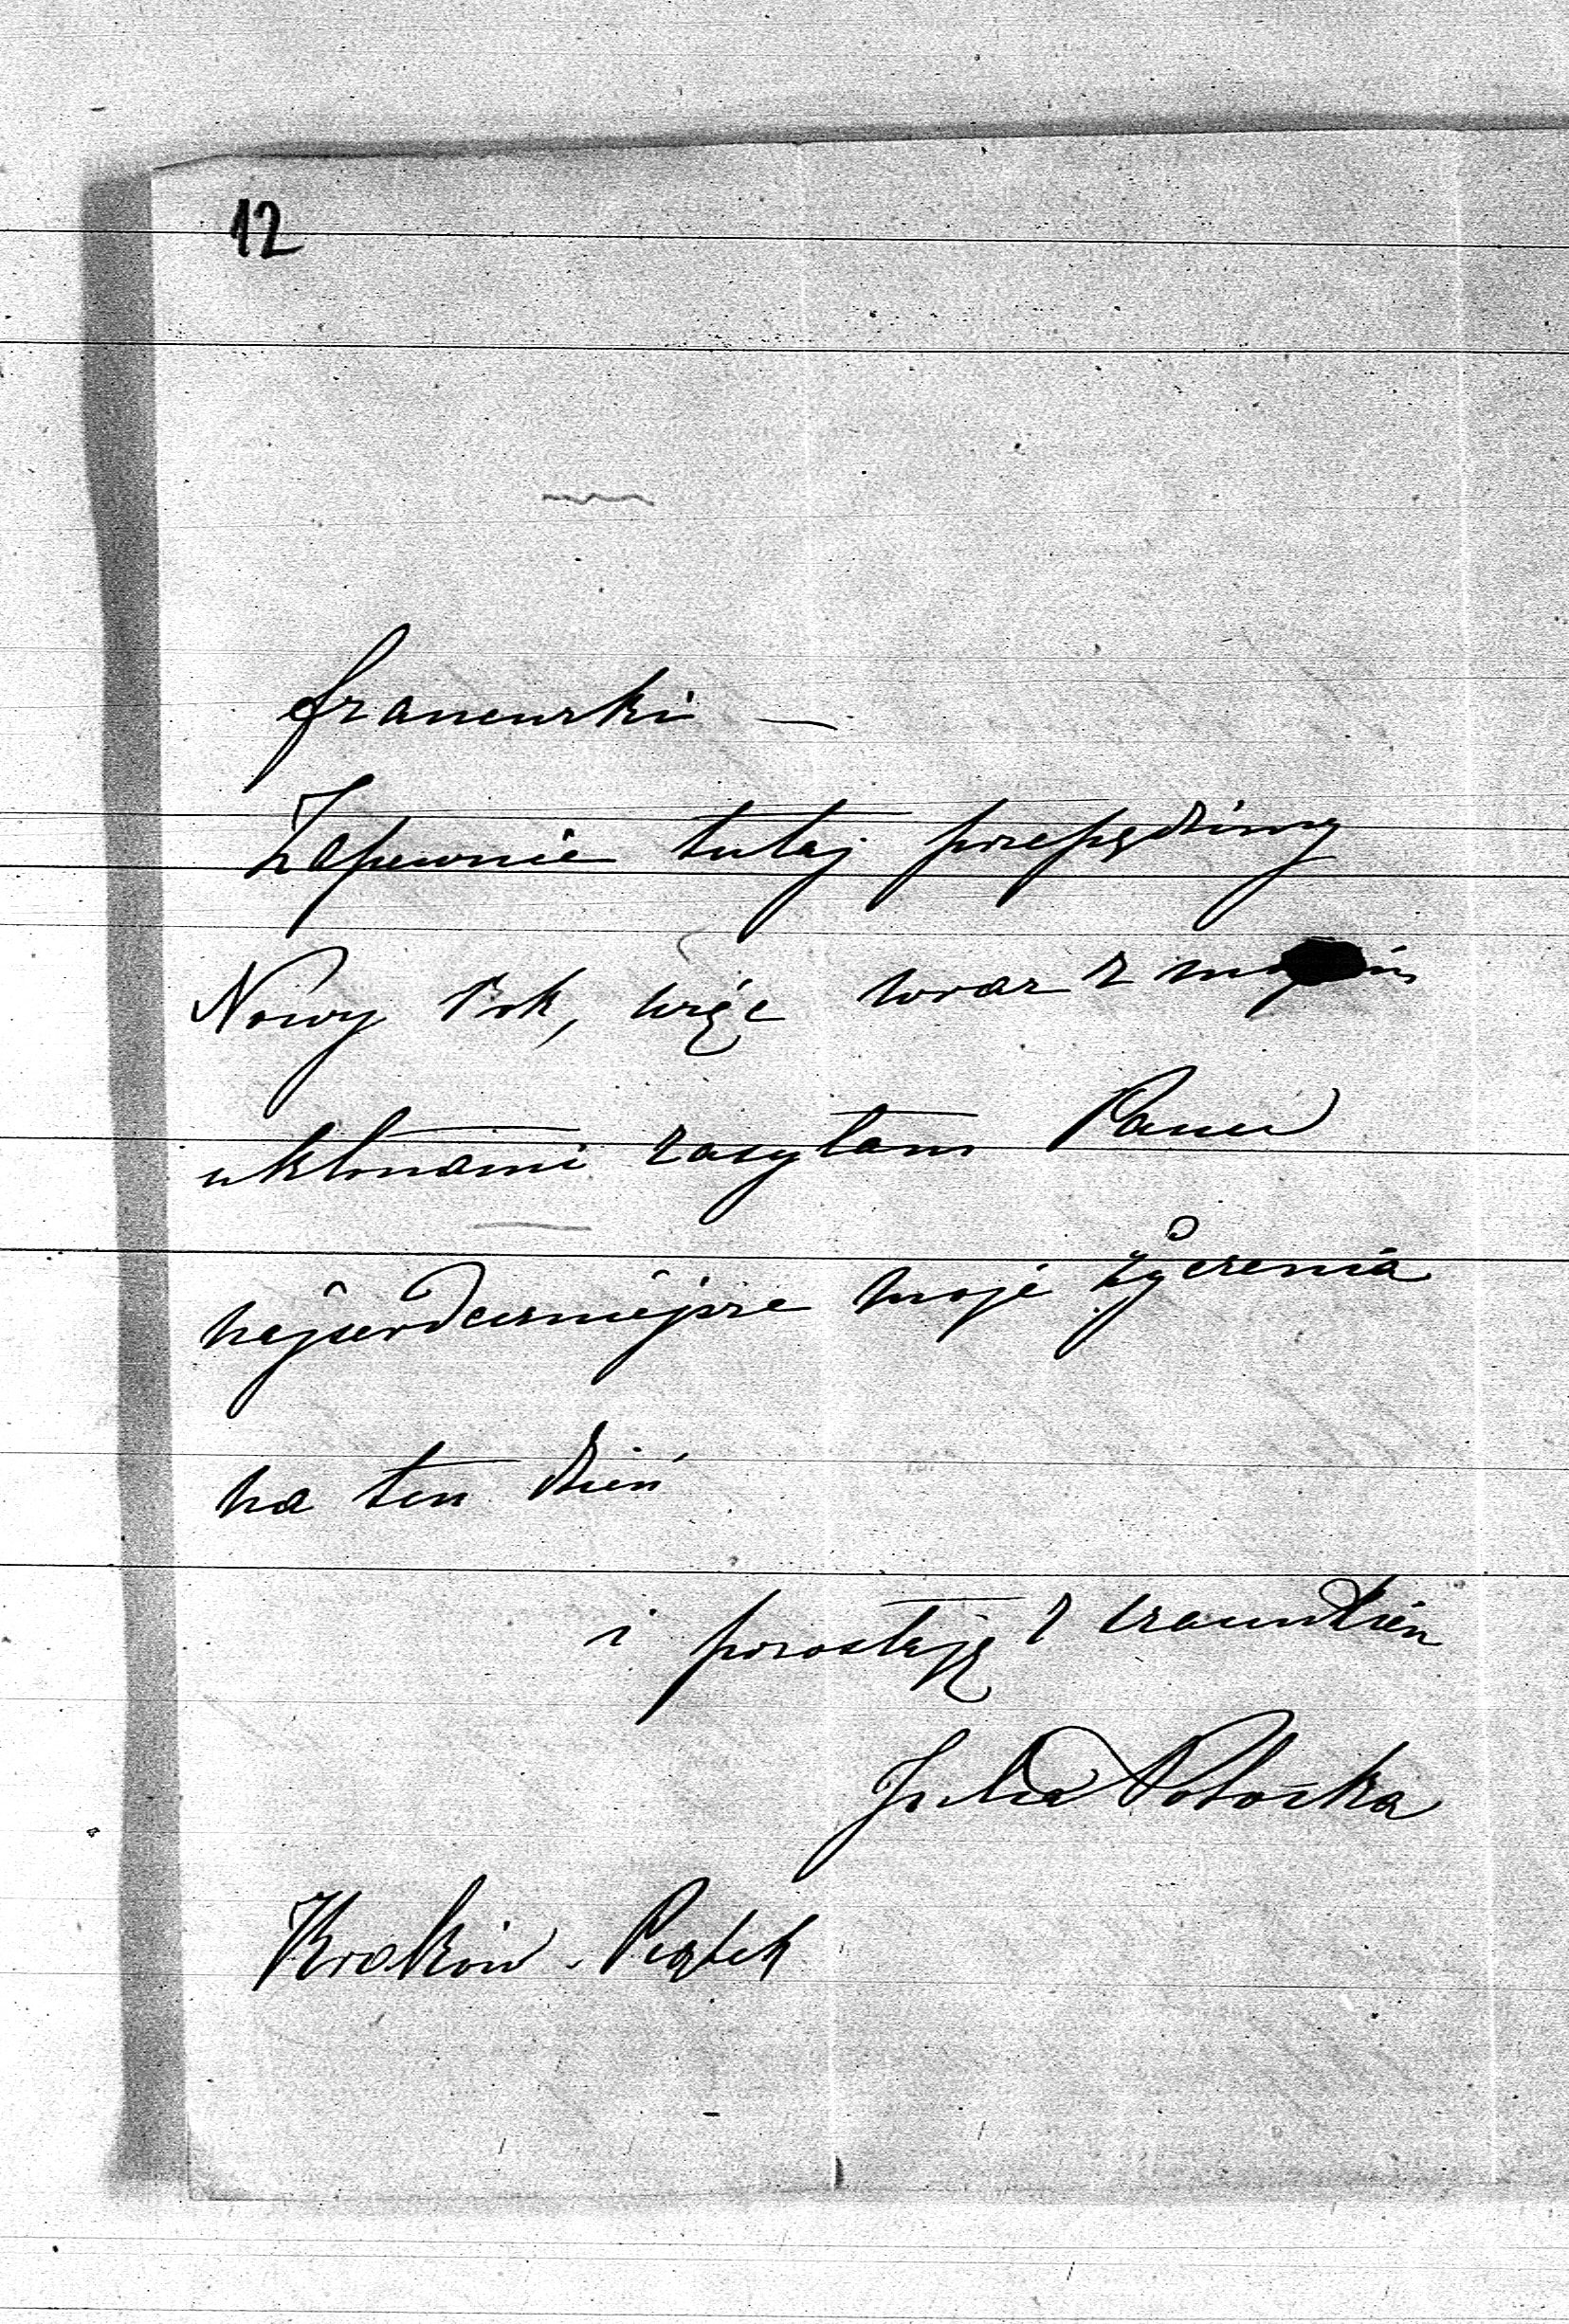 12
francuski —
Zapewnie tutaj przepędzimy
Nowy Rok, więc wraz z mojem
ukłonami zasyłam Panu
najserdeczniejsze moje życzenia
na ten dzień
i pozostaję z szacunkiem
Julia Potocka
Kraków. Piątek